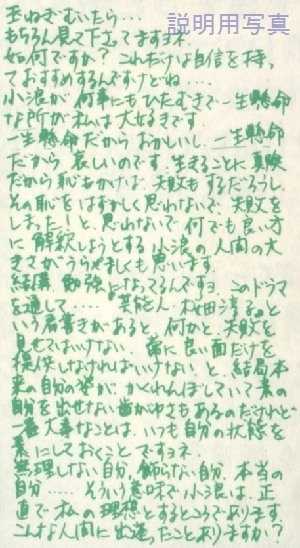 説明用写真
玉ねぎむいたら…
もちろん見て下さってますヨネ
如何ですか? これだけは自信を持っ
ておすすめするんですけどね….
小浪が何事にもひたむきで一生懸命
な所が私は大好きです
一生懸命だからおかしいし、一生懸命
だから哀しいのです。生きることに真険
だから恥もかけば、失敗もするだろうし、
その恥をはずかしく思わないで、失敗を
しました!と、思わないで何でも良い方
に解釈しようとする小浪の人間の大
きさがうらやましくも思います。
結構 勉強になってるんですヨ。このドラマ
を通して…… 芸能人 桜田淳子。と
いう肩書きがあると、何かと、失敗を
見せてはいけない。常に良い面だけを
提供しなければいけないと、結局本
来の自分の姿が、かくれんぼしていて素の
自分を出せない歯がゆさもあるのだけれど
一番大事なことは、いつも自分の状態を
素にしておくことですヨネ
無理しない自分、飾らない自分、本当の
自分…… そういう意味で小浪は、正
直で私の理想とするところであります
こんな人間に出逢ったことありますか?